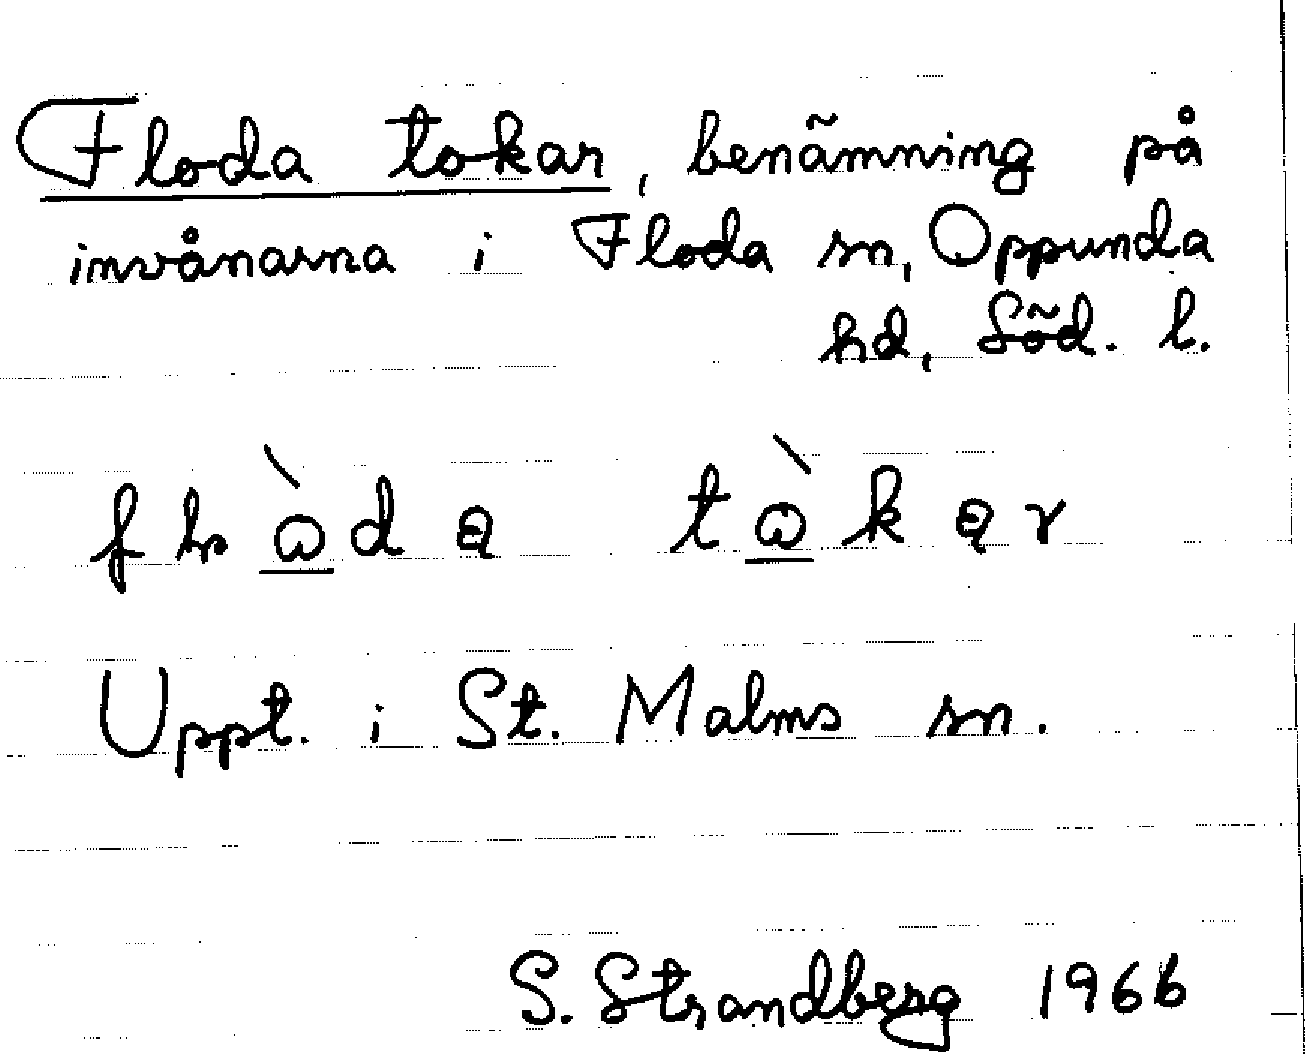 Floda tokar, benämning på
invånarna i Floda sn, Oppunda
hd, Söd. l.
Uppt. i St. Malms sn.
S. Strandberg 1966